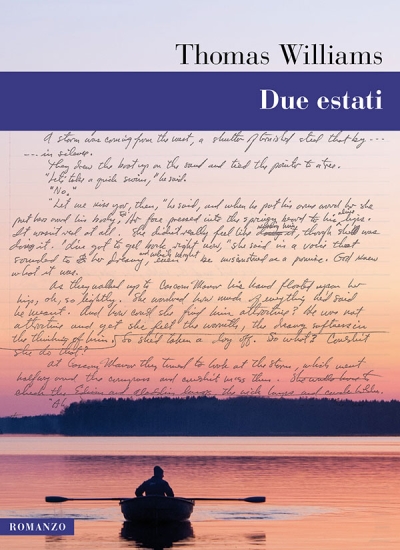 Thomas Williams
Due estati
A storm was coming from the west, a shutter of tarnished steel that lay ---
--- in silence.
They drew the boat up on the sand and tied the painter to a tree.
"Let's take a quick swim," he said.
"No."
"Let me kiss you, then," he said, and when he put his arms around her she
put her own his body, her face pressed into the springy beard to his lips.
It wasn't real at all. She didn't really feel like, though she was
doing it. "I've got to get back, right now," she said in a voice that
sounded to her dreamy, even to be understood as a promise. God knew
what it was.
As they walked up to Cascom Manor his hand floated upon her
hip, oh, so lightly. She wondered how much of everything he'd said
he meant. And how could she find him attractive? He was not
attractive and yet she felt the warmth, the in
the thinking of him. So she'd taken a day off. So what? Couldn't
she do that?
At Cascom Manor they turned to look at the storm, which went
halfway around the and couldn't miss them.
the and the and
"Ah
ROMANZO